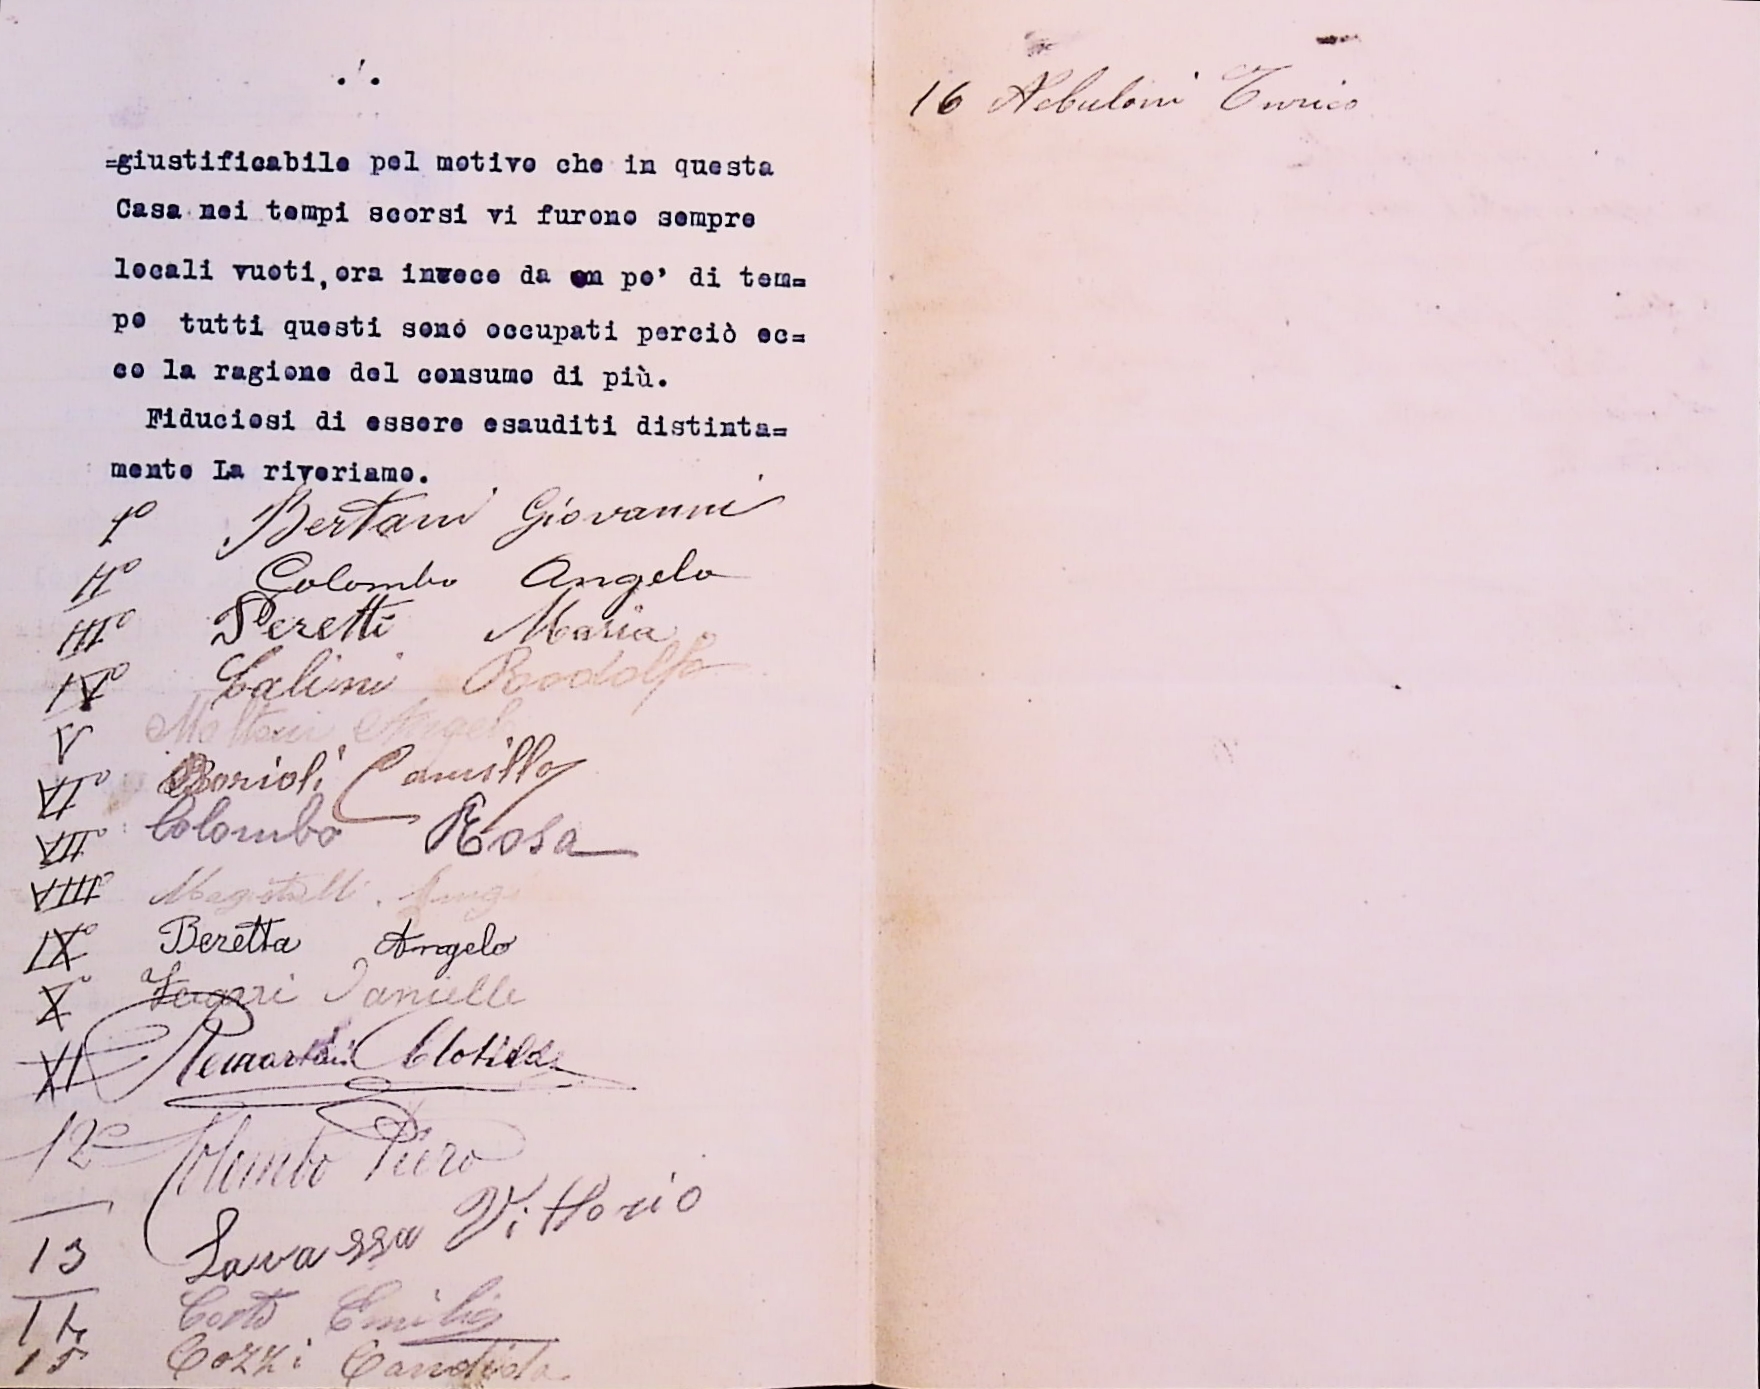 ./.
=giustificabile pel motivo che in questa
Casa nei tempi scorsi vi furono sempre
locali vuoti, ora invece da un po' di tem=
po tutti questi sono occupati perciò ec=
co la ragione del consumo di più.
Fiduciosi di essere esauditi distinta=
mente La riveriamo.
1º Bertani Giovanni
IIº Colombo Angelo
IIIº Peretti Maria
IVº Calini Rodolfo
V Angelo
VIº Borioli Camillo
VIIº Colombo Rosa
VIIIº
IXº Beretta Angelo
Xº Danielle
XI Clotilde
12º Colombo Piero
13 Lavazza Vittorio
14 Emilio
15 Cozzi Candida
16 Nebuloni Enrico